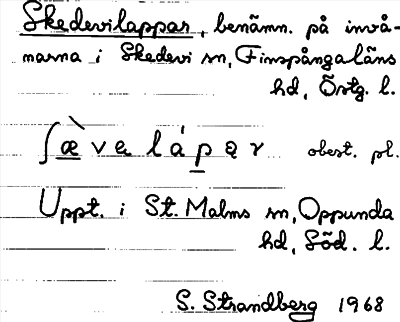 Skedevilappar, benämn. på invå-
narna i Skedevi sn, Finspångaläns
hd, Östg. l.
ʃæ̀vəlápər obest. pl.
Uppt. i St. Malms sn, Oppunda
hd, Söd. l.
S. Strandberg 1968